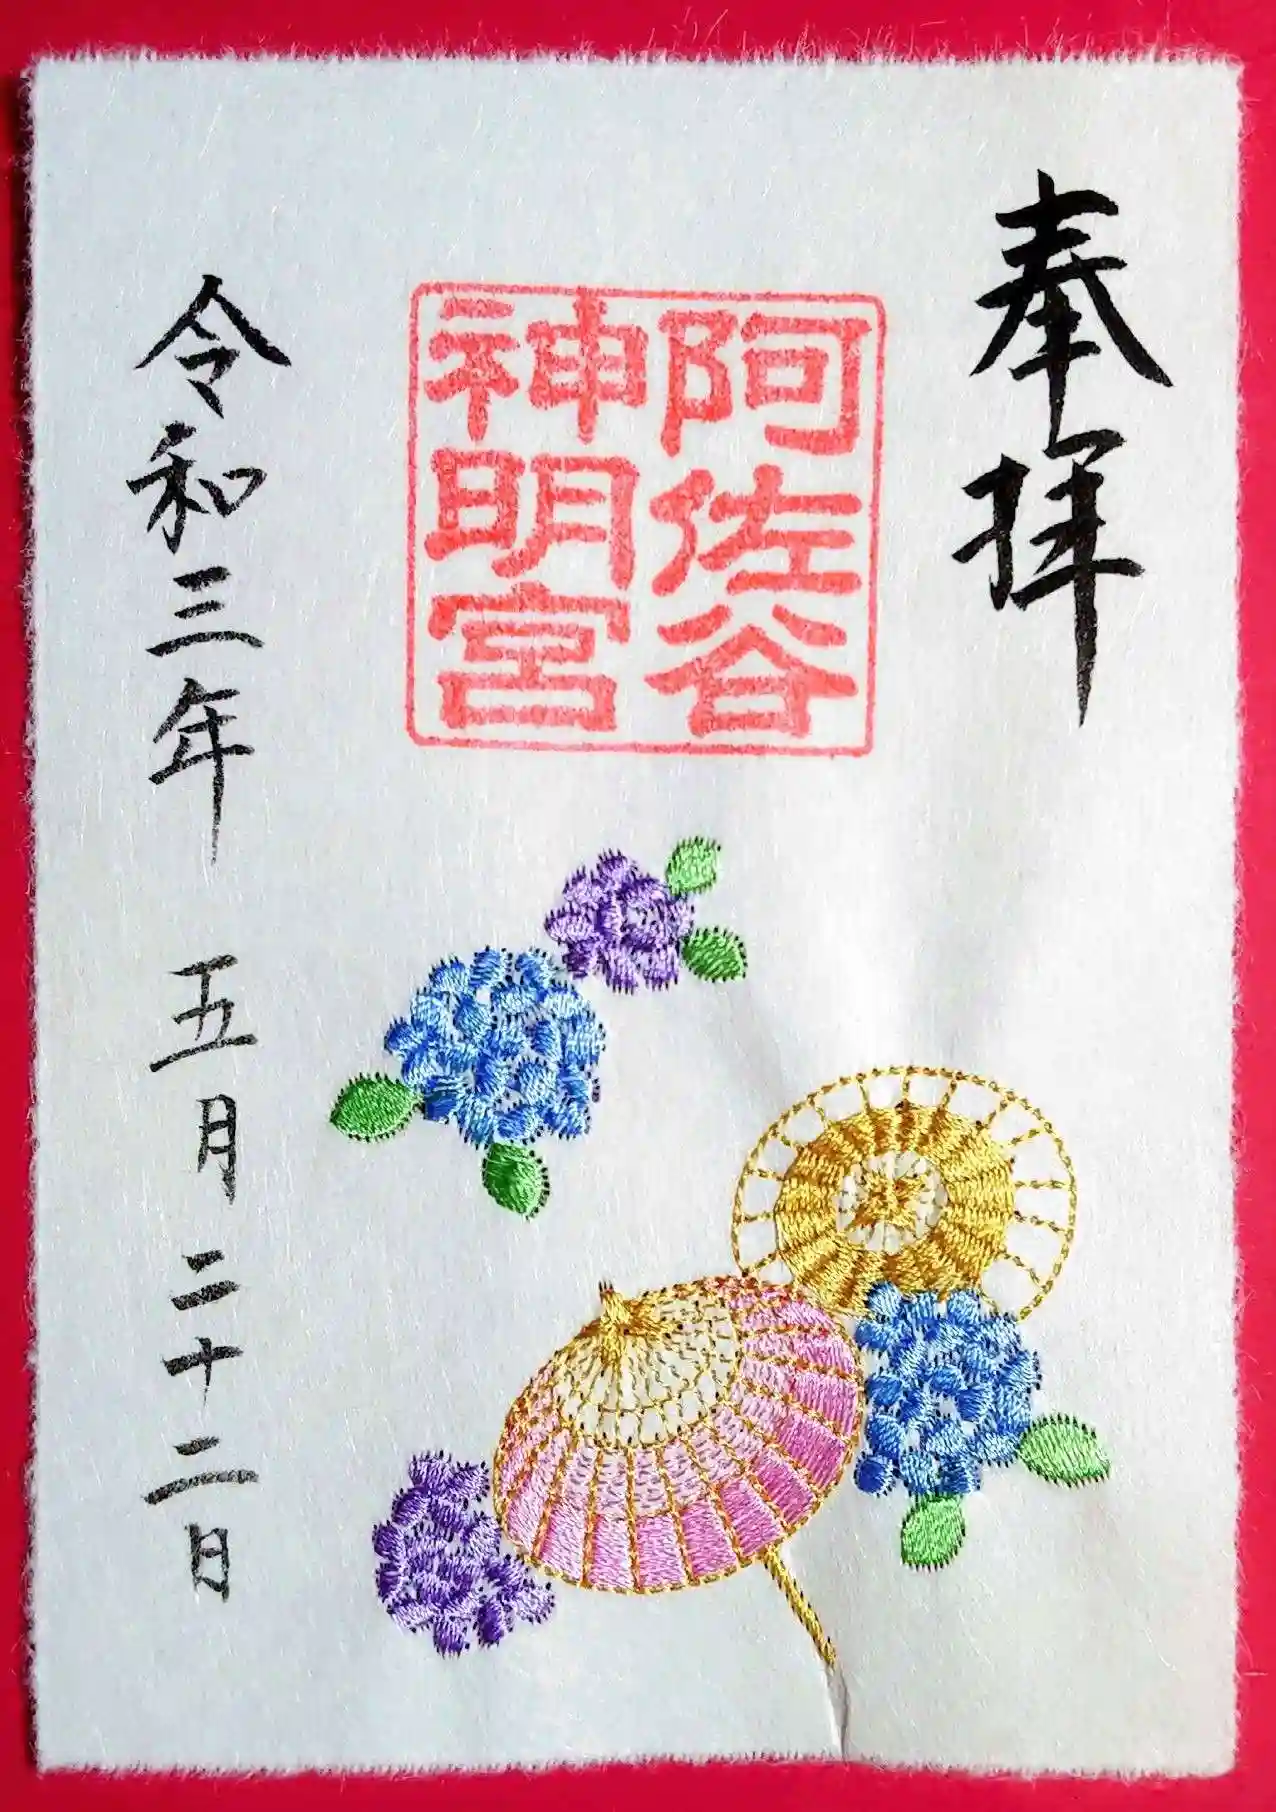 奉拝
阿佐谷
神明宮
令和三年 五月二十二日